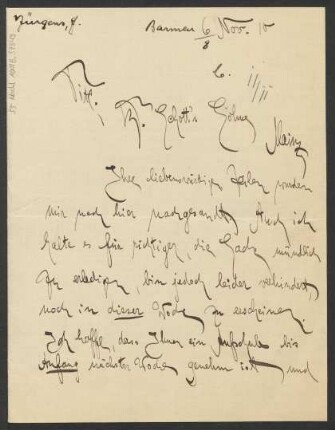 Jürgens, F.
Barmen 6/8 Nov. 10
Titt.
B. Schott's Söhne
Mainz
Ihre liebenswürdigen Zeilen wurden
mir nach hier nachgesandt. Auch ich
halte es für richtiger, die Sache mündlich
zu erledigen, bin jedoch leider verhindert,
noch in dieser Woche zu erscheinen.
Ich hoffe, dass Ihnen ein Aufschub bis
Anfang nächster Woche genehm ist und